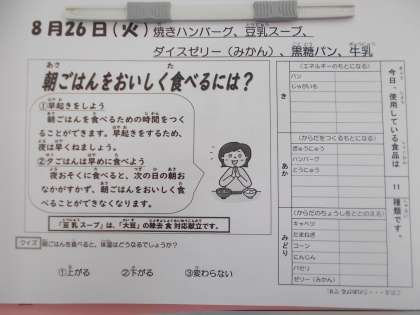 8月26日(火) 焼きハンバーグ、豆乳スープ、
ダイスゼリー（みかん）、黒糖パン、牛乳
朝ごはんをおいしく食べるには？
①早起きをしよう
朝ごはんを食べるための時間をつく
ることができます。早起きをするため、
夜は早くねましょう。
②夕ごはんは早めに食べよう
夜おそくに食べると、次の日の朝お
なかがすかず、朝ごはんをおいしく食
べることができなくなります。
「豆乳スープ」は、「大豆」の除去食対応献立です。
クイズ 朝ごはんを食べると、体温はどうなるでしょうか？
①上がる ②下がる ③変わらない
き
（エネルギーのもとになる）
パン
じゃがいも
あか
（からだをつくるもとになる）
ぎゅうにゅう
ハンバーグ
とうにゅう
みどり
（からだのちょうしをととのえる）
キャベツ
たまねぎ
コーン
にんじん
パセリ
ゼリー（みかん）
今日、使用している食品は 11 種類です。